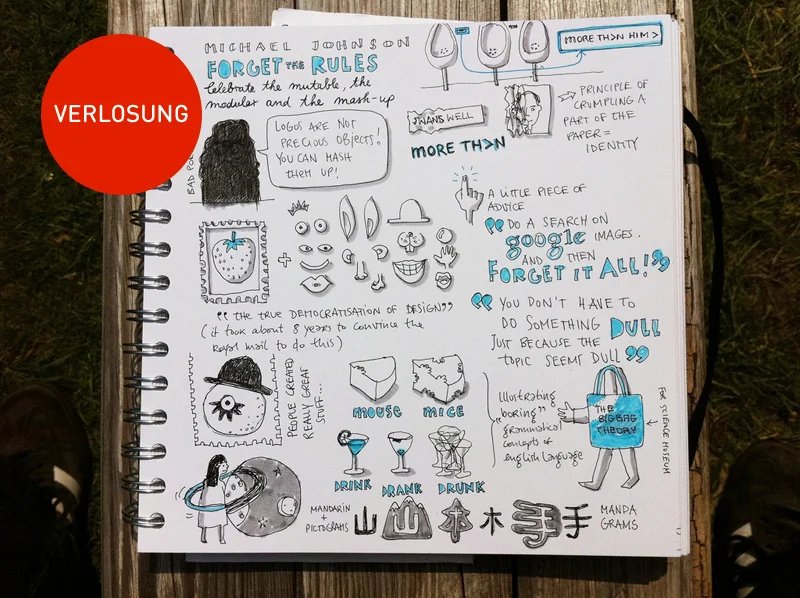 VERLOSUNG
MICHAEL JOHNSON
FORGET THE RULES
Celebrate the mutable, the
modular and the mash-up
MORE TH>N HIM >
BAD
LOGOS ARE NOT
PRECIOUS OBJECTS!
YOU CAN MASH
THEM UP!
WELL
MORE TH>N
PRINCIPLE OF
CRUMPLING A
PART OF THE
PAPER =
IDENTITY
A LITTLE PIECE OF
ADVICE
"DO A SEARCH ON
google IMAGES.
AND THEN
FORGET IT ALL!"
"THE TRUE DEMOCRATISATION OF DESIGN"
(it took about 8 years to convince the
Royal mail to do this)
"YOU DON'T HAVE TO
DO SOMETHING DULL
JUST BECAUSE THE
TOPIC SEEMS DULL"
PEOPLE CREATED
REALLY GREAT
STUFF...
MOUSE MICE
DRINK DRANK DRUNK
Illustrating
"boring"
grammatical
concepts of
english language
THE
BIG BAG
THEORY
FOR SCIENCE MUSEUM
MANDARIN
+
PICTOGRAMS
山 山 木 木 手 手
MANDA
GRAMS